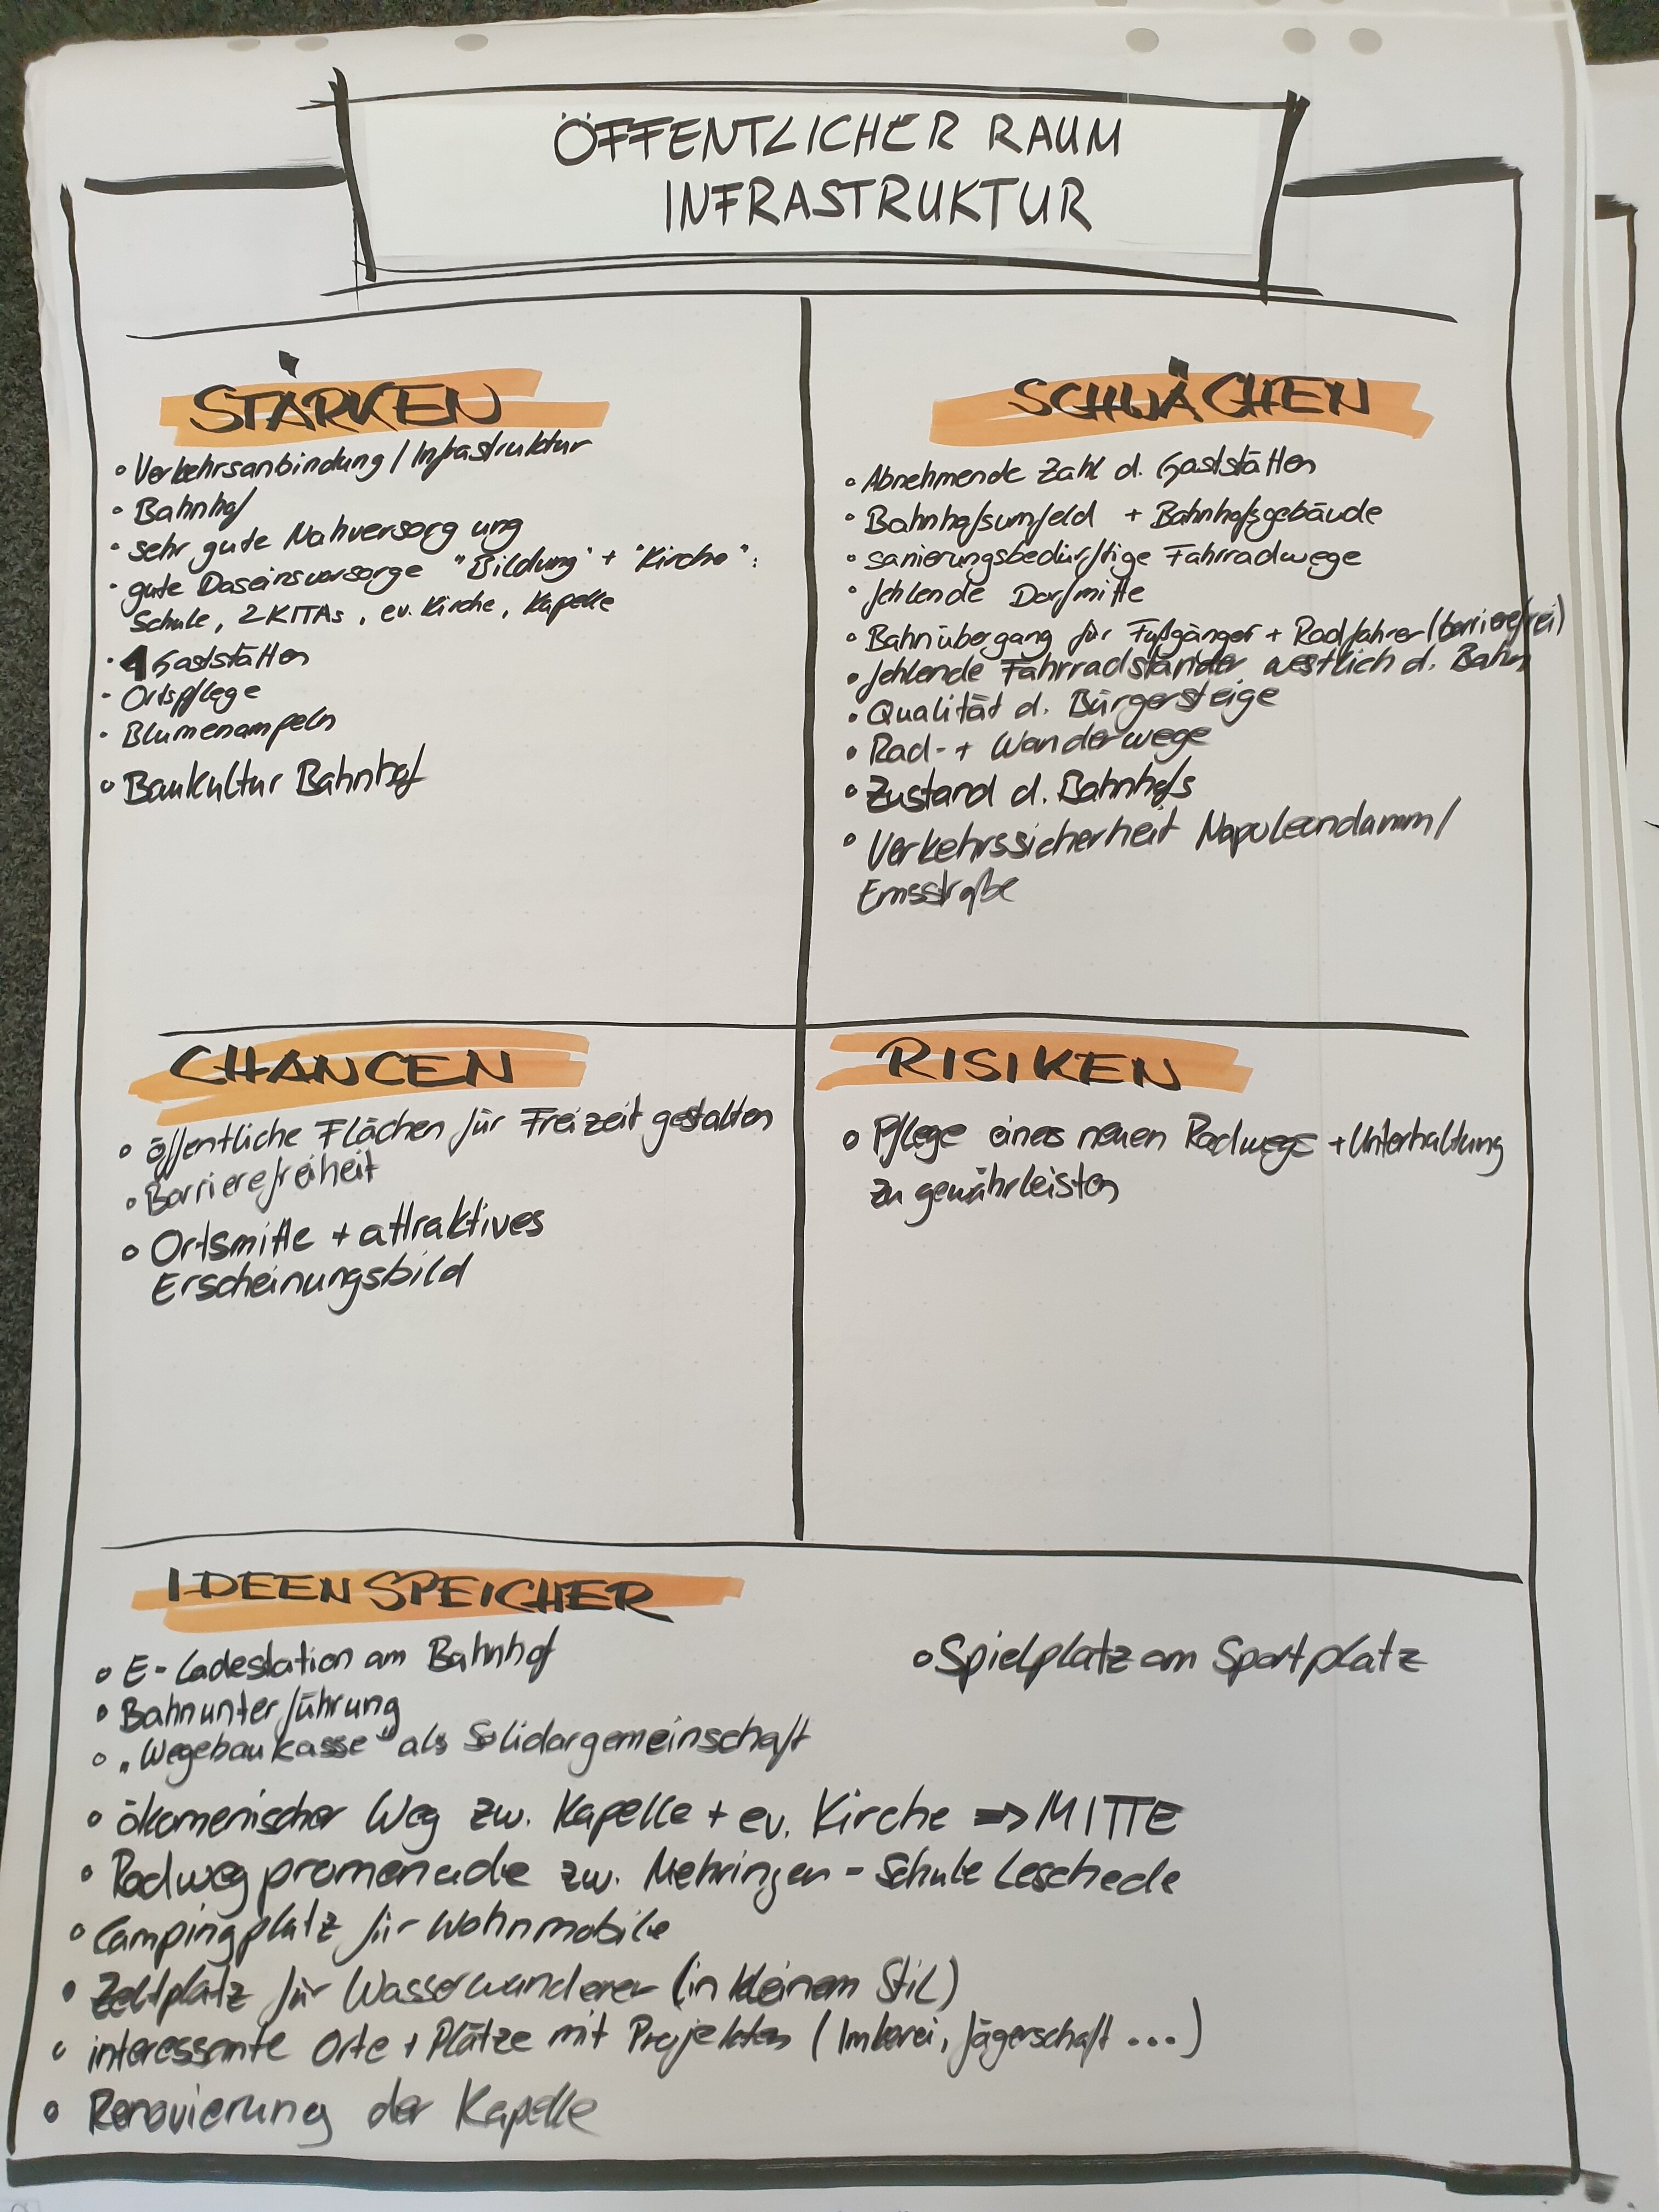 ÖFFENTLICHER RAUM
INFRASTRUKTUR
STÄRKEN
• Verkehrsanbindung / Infrastruktur
• Bahnhof
• sehr gute Nahversorgung
• gute Daseinsvorsorge "Bildung" + "Kirche":
Schule, 2 KITAs, ev. Kirche, Kapelle
• Gaststätten
• Ortspflege
• Blumenampeln
• Baukultur Bahnhof
SCHWÄCHEN
• Abnehmende Zahl d. Gaststätten
• Bahnhofsumfeld + Bahnhofsgebäude
• sanierungsbedürftige Fahrradwege
• fehlende Dorfmitte
• Bahnübergang für Fußgänger + Radfahrer (barrierefrei)
• fehlende Fahrradständer westlich d. Bahn
• Qualität d. Bürgersteige
• Rad- + Wanderwege
• Zustand d. Bahnhofs
• Verkehrssicherheit Napoleondamm /
Emsstraße
CHANCEN
• öffentliche Flächen für Freizeit gestalten
• Barrierefreiheit
• Ortsmitte + attraktives
Erscheinungsbild
RISIKEN
• Pflege eines neuen Radwegs + Unterhaltung
zu gewährleisten
IDEENSPEICHER
• E-Ladestation am Bahnhof
• Bahnunterführung
• „Wegebaukasse" als Solidargemeinschaft
• ökomenischer Weg zw. Kapelle + ev. Kirche => MITTE
• Radwegpromenade zw. Mehringen - Schule Leschede
• Campingplatz für Wohnmobile
• Zeltplatz für Wasserwanderer (in kleinem Stil)
• interessante Orte + Plätze mit Projekten (Imkerei, Jägerschaft ...)
• Renovierung der Kapelle
• Spielplatz am Sportplatz